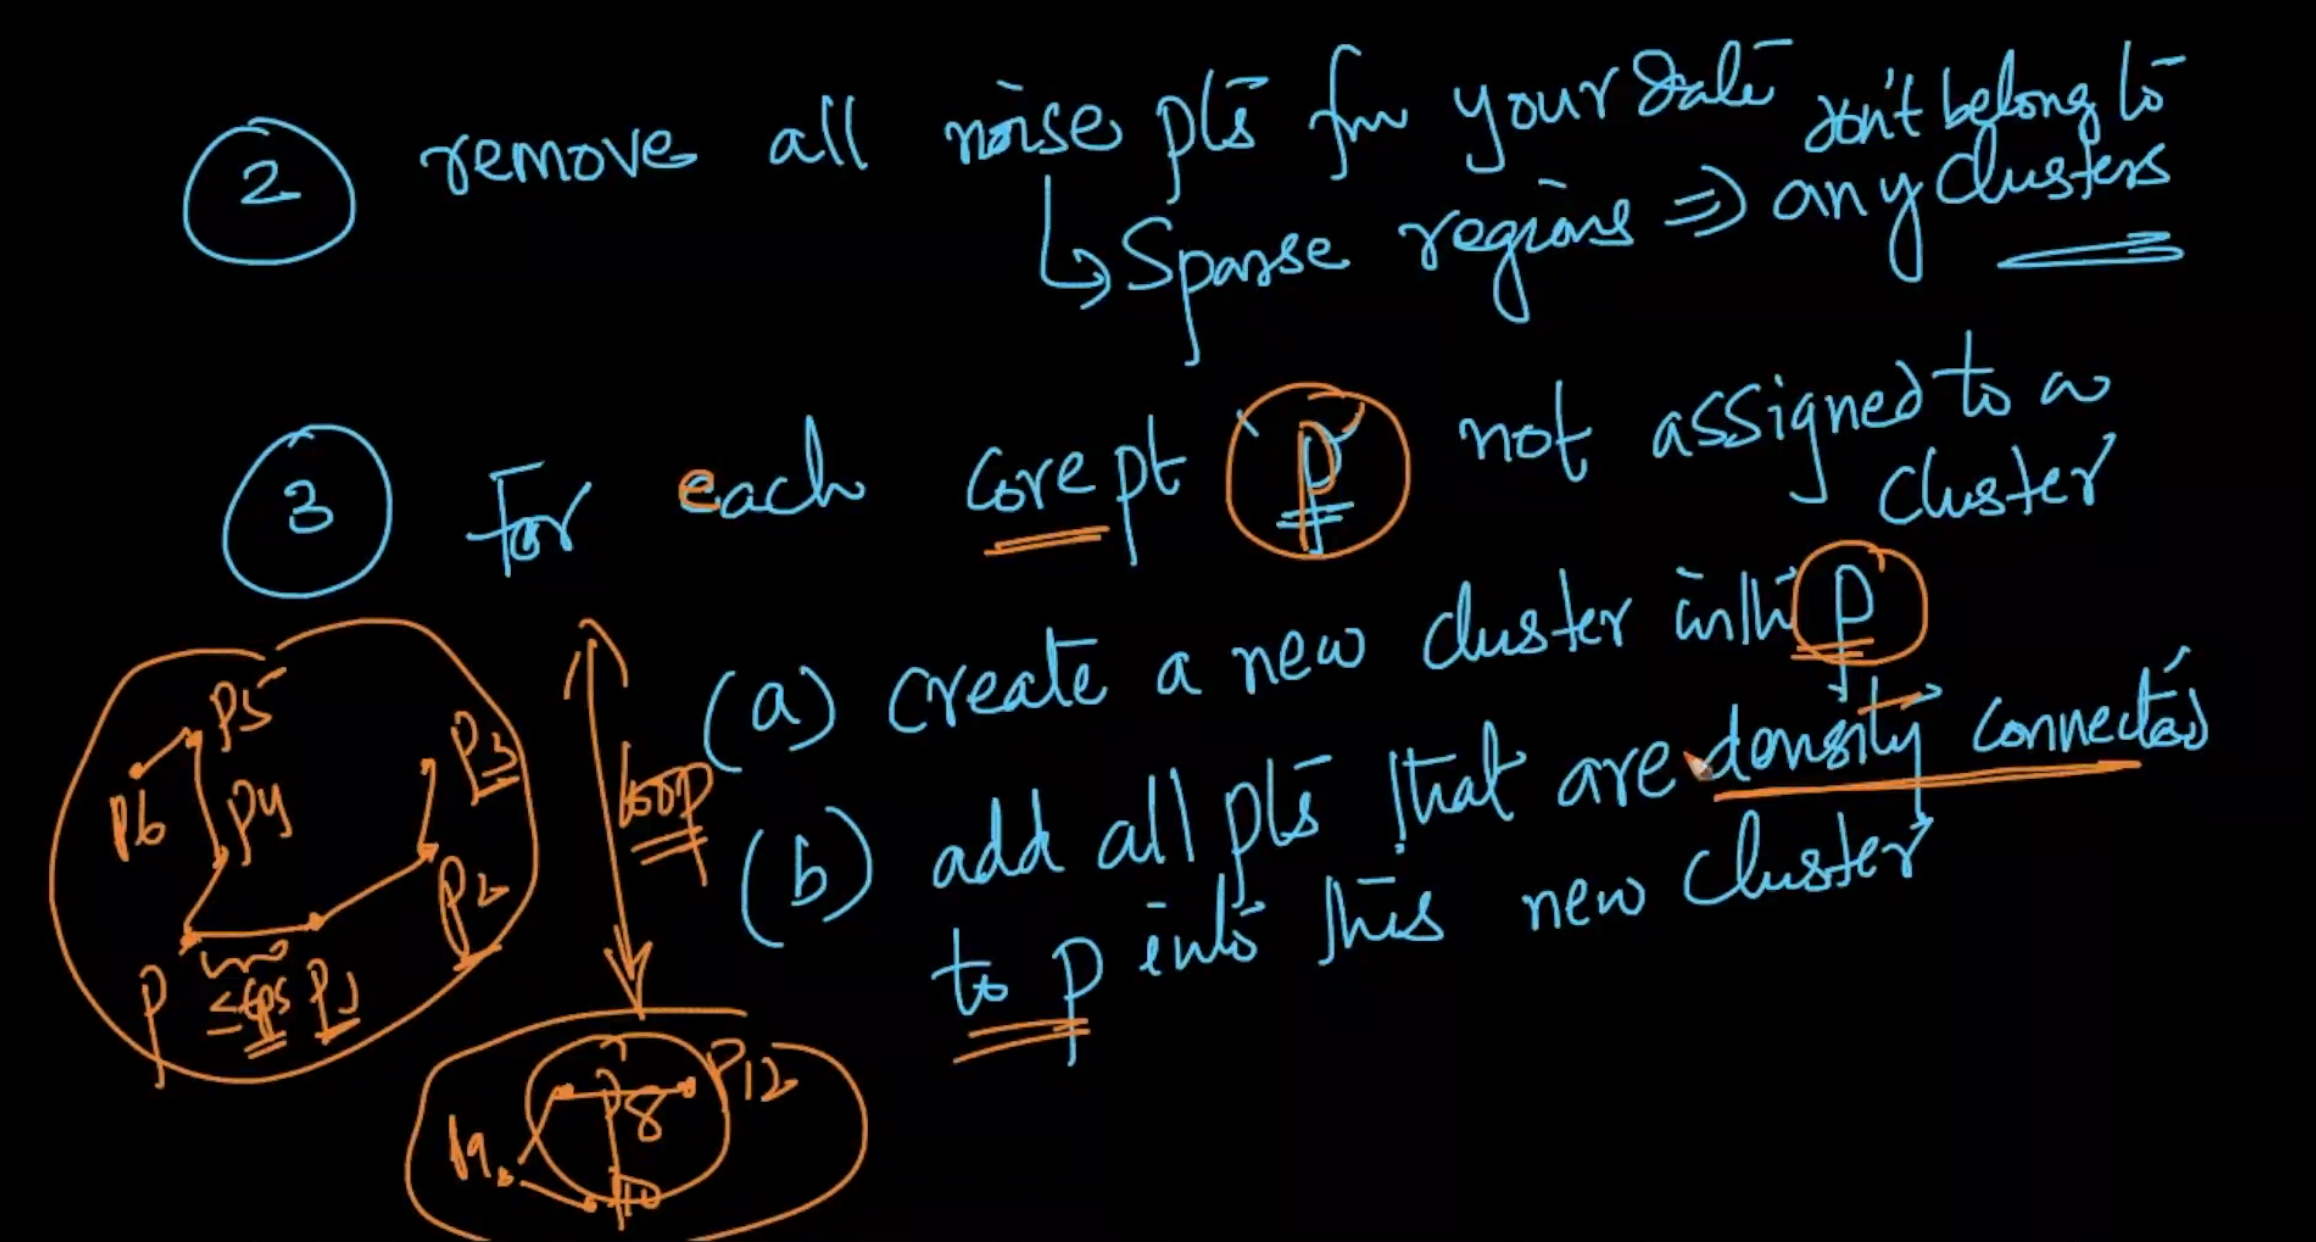 2 remove all noise pts from your data don't belong to
↳ Sparse regions ⇒ any clusters
3 For each core pt p not assigned to a
cluster
(a) create a new cluster with p
(b) add all pts that are density connected
to p into this new cluster
loop
p5
p3
p6
p4
p2
p
≤ eps
p1
p8
p12
p9
p10